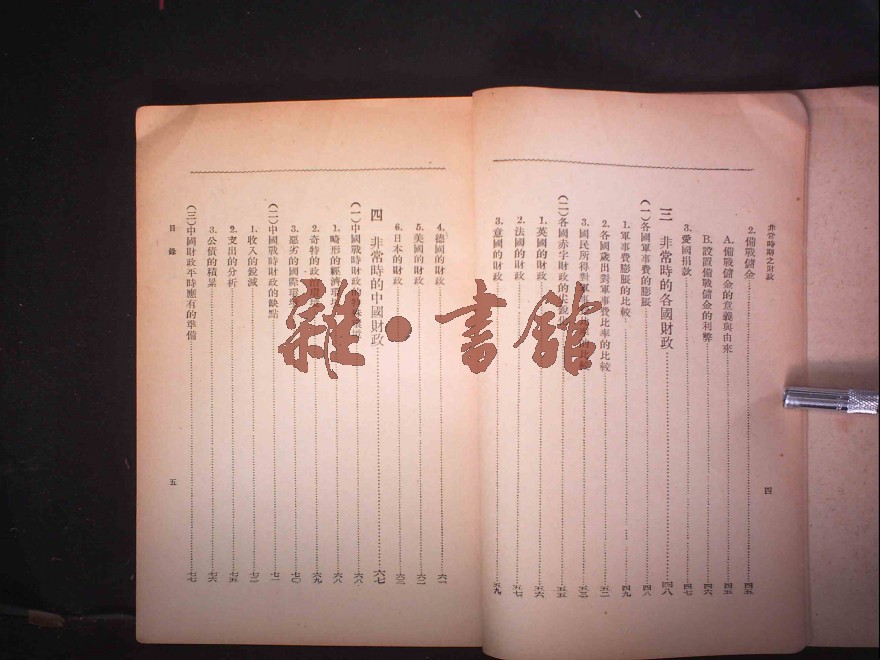 非常時期之財政
四
2. 備戰儲金……四五
A. 備戰儲金的意義與由來……四五
B. 設置備戰儲金的利弊……四六
3. 愛國捐款……四七
三 非常時的各國財政……四八
(一)各國軍事費的膨脹……四八
1. 軍事費膨脹的比較……四九
2. 各國歲出對軍事費比率的比較……五二
3. 國民所得對軍事
(二)各國赤字財政的尖銳化……五五
1. 英國的財政……五六
2. 法國的財政……五七
3. 意國的財政……五九
4. 德國的財政……六一
5. 美國的財政……六二
6. 日本的財政……六三
四 非常時的中國財政……六七
(一)中國戰時財政的……六八
1. 畸形的經濟環境……六八
2. 奇特的政治……六九
3. 惡劣的國際環境……七〇
(二)中國戰時財政的缺點……七一
1. 收入的銳減……七二
2. 支出的分析……七五
3. 公債的積累……七六
(三)中國財政平時應有的準備……七七
目錄
五
雜·書館